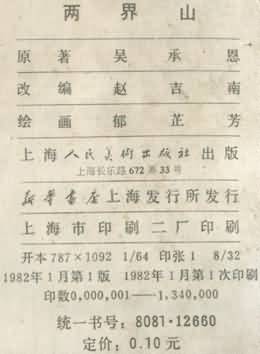 两界山
原著 吴承恩
改编 赵吉南
绘画 郁芷芳
上海人民美術出版社出版
上海长乐路672弄33号
新华書店上海发行所发行
上海市印刷二厂印刷
开本787×1092 1/64 印张1 8/32
1982年1月第1版 1982年1月第1次印刷
印数0,000,001——1,340,000
统一书号:8081·12660
定价:0.10元